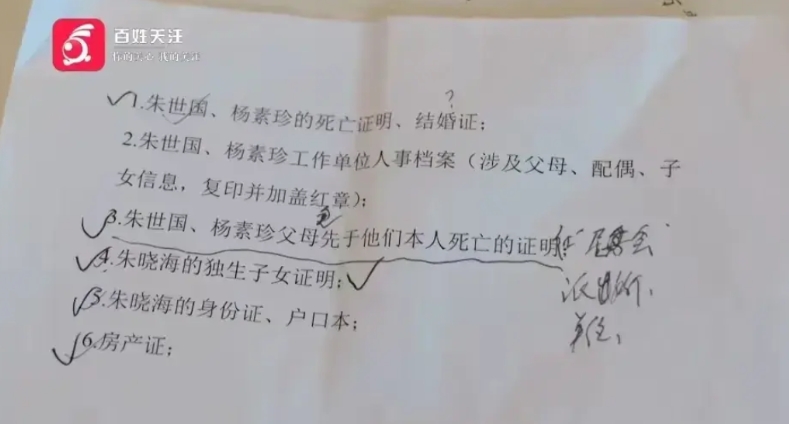 百姓关注
你的关心 我的关注
?
1.朱世国、杨素珍的死亡证明、结婚证;
2.朱世国、杨素珍工作单位人事档案(涉及父母、配偶、子
女信息,复印并加盖红章);
3.朱世国、杨素珍父母先于他们本人死亡的证明
居委会
4.朱晓海的独生子女证明;
派出所、
5.朱晓海的身份证、户口本;
单位、
6.房产证;